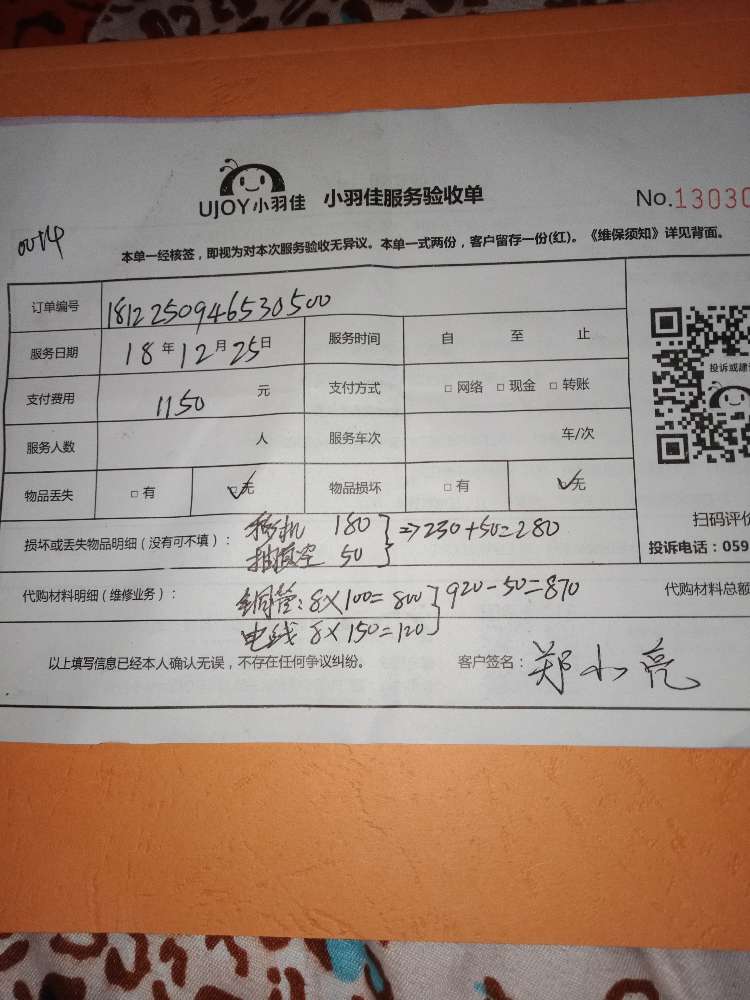 UJOY小羽佳 小羽佳服务验收单
No.13030
本单一经核签，即视为对本次服务验收无异议。本单一式两份，客户留存一份(红)。《维保须知》详见背面。
订单编号 1812250946530500
服务日期 18年12月25日 服务时间 自 至 止
投诉或建
支付费用 1150 元 支付方式 □网络 □现金 □转账
服务人数 人 服务车次 车/次
物品丢失 □有 ☑无 物品损坏 □有 ☑无
扫码评价
损坏或丢失物品明细（没有可不填）： 移机 180
抽真空 50 } ⇒230+50=280
投诉电话：059
代购材料明细（维修业务）： 铜管：8×100=800
电线 8×150=120 } 920-50=870
代购材料总额
以上填写信息已经本人确认无误，不存在任何争议纠纷。 客户签名：郑小亮